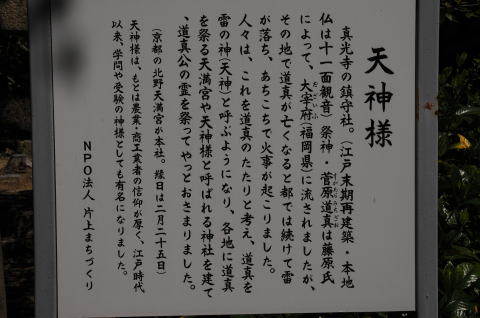 天神様
真光寺の鎮守社。(江戸末期再建築・本地
仏は十一面観音)祭神・菅原道真は藤原氏
によって、大宰府(福岡県)に流されましたが、
その地で道真が亡くなると都では続けて雷
が落ち、あちこちで火事が起こりました。
人々は、これを道真のたたりと考え、道真を
雷の神(天神)と呼ぶようになり、各地に道真
を祭る天満宮や天神様と呼ばれる神社を建て
、道真公の霊を祭ってやっとおさまりました。
(京都の北野天満宮が本社。縁日は二月二十五日)
天神様は、もとは農業・商工業者の信仰が厚く、江戸時代
以来、学問や受験の神様としても有名になりました。
NPO法人 片上まちづくり